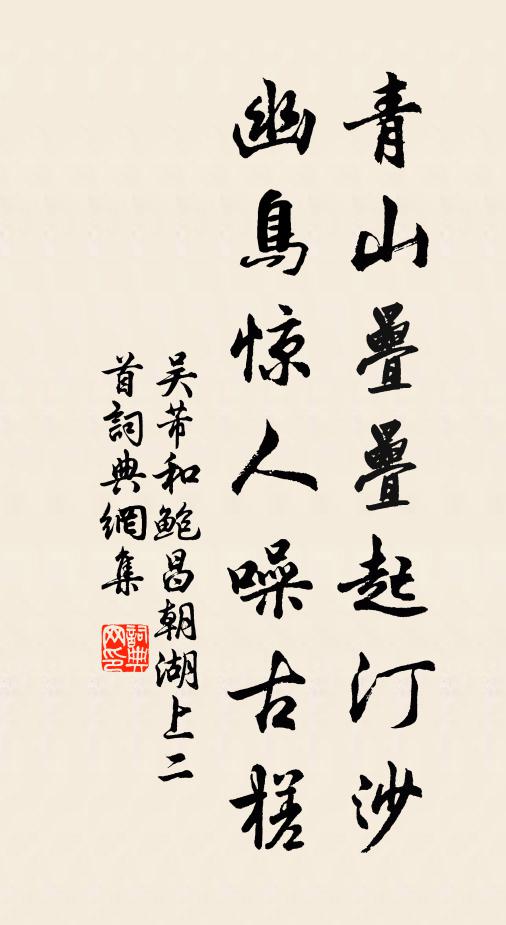 青山疊疊起汀沙
幽鳥惊人噪古槎
吴芾和鲍昌朝湖上二
首詞典網集
詞典網印